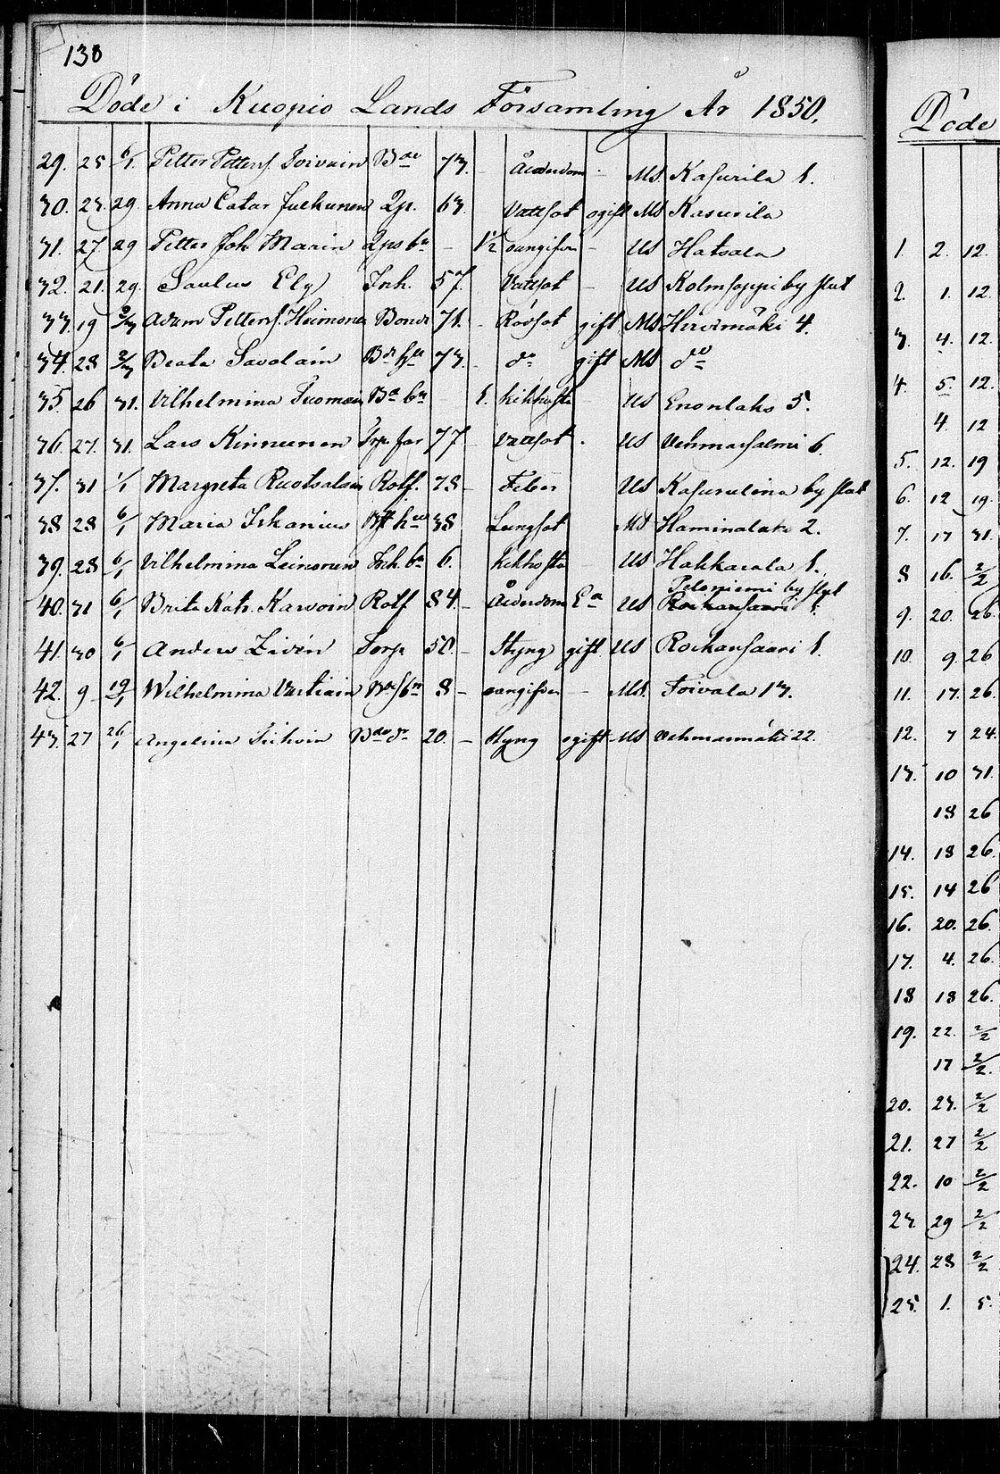 130
Döde i Kuopio Lands Församling År 1850.
29. 25 6/1. Petter Petters. Toivain 73. Ålderdom - Ms. Kasurila 1.
30. 23. 29. Anna Catar Julkunen Qp. 63. Vattsot ogift Ms Kasurila
31. 27. 29 Petter Joh Marin - 1½ oangifven - Us Hatsala
32. 21. 29. Saulus Ely Inh. 57. Vattsot - Us by slut
33. 19 Adam Petters. Heimonen Bonde 71. - Rödsot gift Ms Hirvimäki 4.
34. 28 Beata Savolain 73. - do gift Ms do
35. 26 31. Vilhelmina Tuomain - 1. kikhosta - Us Enonlaks 5.
36. 27. 31. Lars Kinnunen Torp far 77 - Vattsot. Us Vehmasalmi 6.
37. 31 1/1 Margreta Ruotsalain Rotf. 78 - Feber Us Kasurulina by slut
38 28 6/1 Maria 38 Lungsot Ms Haminalaks 2.
39. 28 6/1 Vilhelmina Leinonen Inh. bn 6. kikhosta Us Hakkarala 1.
by slut
40. 31 6/1 Brita Katr. Karvoin Rotf 84. - Ålderdom Ea Us
41. 30 6/1 Anders Torp 50. - Styng gift Us Roikansaari 1.
42. 9 19/1 Wilhelmina Vartiain 8 - oangifven - Ms. Toivala 13.
43. 27 26/1 Angelina Tiihoin 20. - Styng ogift Us Vehmasmäki 22.
Döde
1. 2. 12.
2. 1. 12.
3. 4. 12.
4. 5. 12.
4 12
5. 12. 19
6. 12 19.
7. 17 31.
8 16. 2/2
9. 20. 26.
10. 9 26
11. 17. 26.
12. 7 24.
13. 10 31.
18 26
14. 18 26.
15. 14 26
16. 20. 26.
17. 4. 26.
18 18 26.
19. 22. 2/2
17 2/2.
20. 23. 2/2
21. 27 2/2
22. 10 2/2
23. 29 2/2
24. 28 2/2
25. 1. 5.